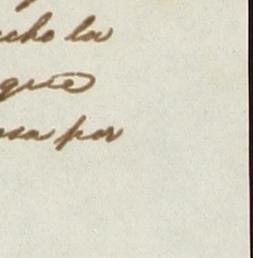 cho la
que
sa por